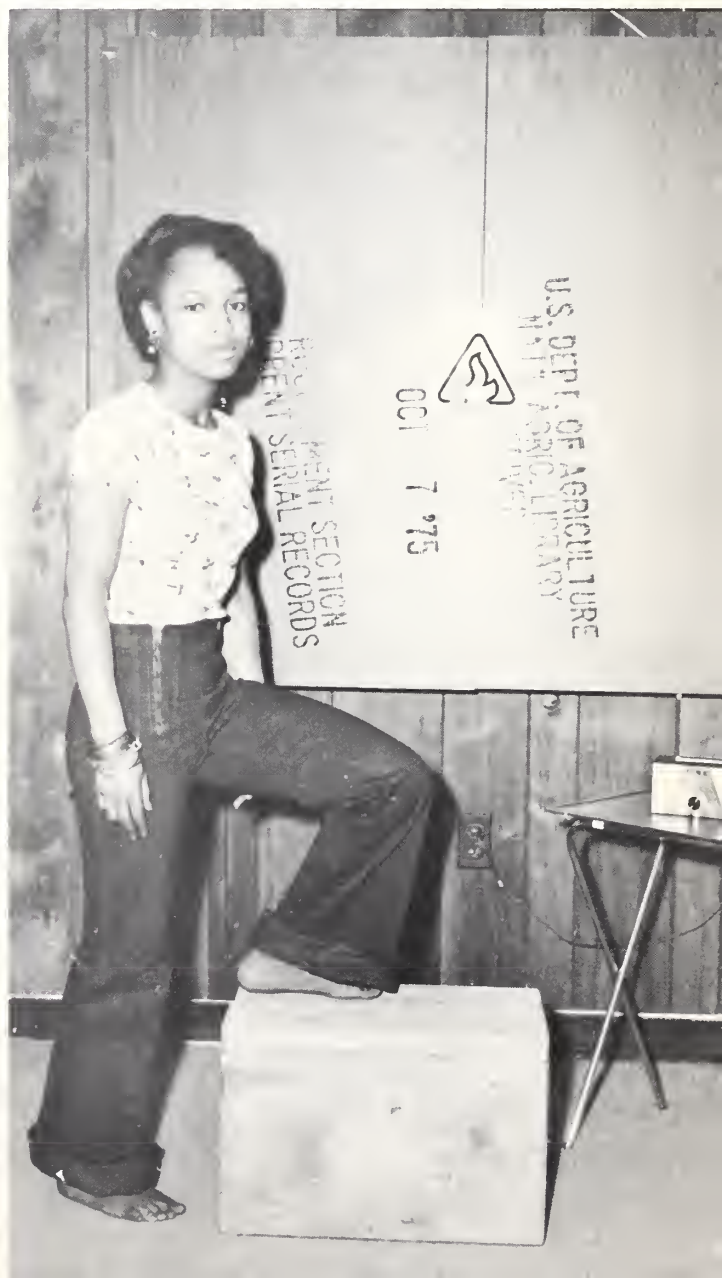 U.S. DEPT. OF AGRICULTURE
NAT'L AGRIC. LIBRARY
OCT 7 '75
MENT SECTION
RRENT SERIAL RECORDS